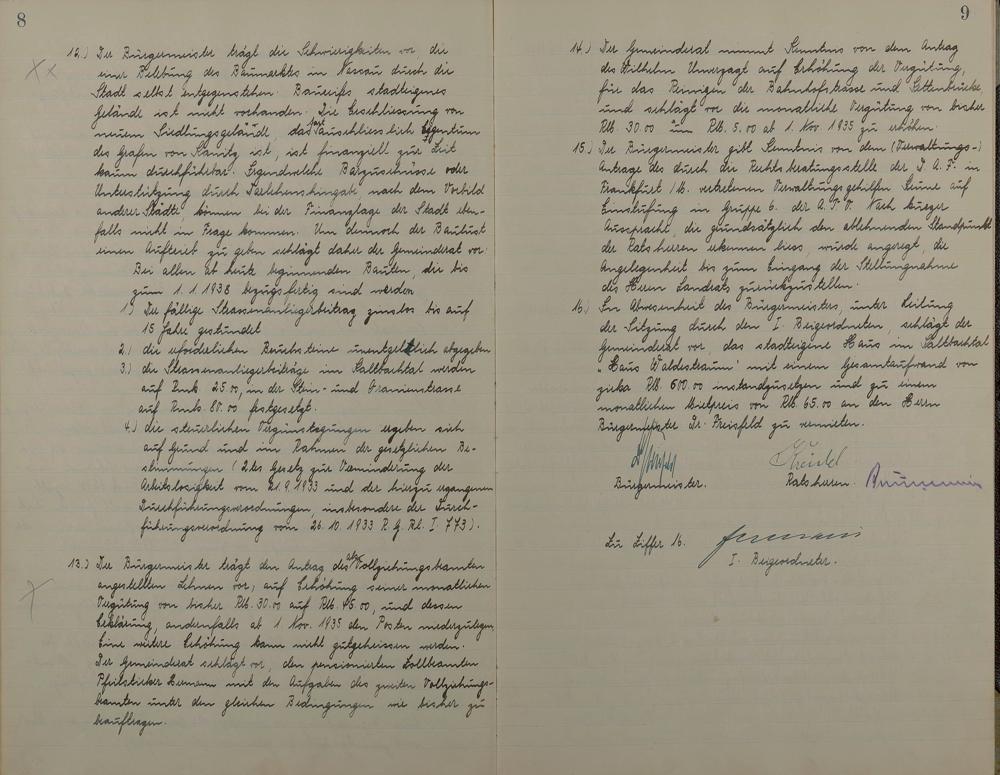 8
12.) Der Bürgermeister trägt die Schwierigkeiten vor die
einer Belebung des Baumarktes in Nassau durch die
Stadt selbst entgegenstehen. Baureifes stadteigenes
Gelände ist nicht vorhanden. Die Erschliessung von
neuem Siedlungsgelände, das fast ausschliesslich Eigentum
des Grafen von Kanitz ist, ist finanziell zur Zeit
kaum durchführbar. Irgendwelche Barzuschüsse oder
Unterstützung durch Darlehenshingabe nach dem Vorbild
anderer Städte können bei der Finanzlage der Stadt eben-
falls nicht in Frage kommen. Um dennoch der Baulust
einen Auftrieb zu geben schlägt daher der Gemeinderat vor:
Bei allen ab heute beginnenden Bauten, die bis
zum 1.1.1938 bezugsfertig sind werden
1.) Der fällige Strassenanliegerbeitrag zinslos bis auf
15 Jahre gestundet
2.) die erforderlichen Bruchsteine unentgeltlich abgegeben
3.) die Strassenanliegerbeiträge im Kaltbachtal werden
auf Rmk 25.00, in der Stein- und Oranienstrasse
auf Rmk. 80.00 festgesetzt.
4.) die steuerlichen Vergünstigungen ergeben sich
auf Grund und im Rahmen der gesetzlichen Be-
stimmungen (2tes Gesetz zur Verminderung der
Arbeitslosigkeit vom 21.9.1933 und der hierzu ergangenen
Durchführungsverordnungen, insbesondere der Durch-
führungsverordnung vom 26.10.1933 R.G.Bl. I 773).
13.) Der Bürgermeister trägt den Antrag des als Vollziehungsbeamten
angestellten Lehnen vor, auf Erhöhung seiner monatlichen
Vergütung von bisher RM. 30.00 auf RM. 45.00, und dessen
Erklärung, andernfalls ab 1 Nov. 1935 den Posten niederzulegen,
Eine weitere Erhöhung kann nicht gutgeheissen werden.
Der Gemeinderat schlägt vor, den pensionierten Zollbeamten
Pfeilsticker Hermann mit den Aufgaben des zweiten Vollziehungs-
beamten unter den gleichen Bedingungen wie bisher zu
beauftragen.
9
14.) Der Gemeinderat nimmt Kenntnis von dem Antrag
des Wilhelm Unverzagt auf Erhöhung der Vergütung,
für das Reinigen der Bahnhofstrasse und Kettenbrücke,
und schlägt vor die monatliche Vergütung von bisher
RM. 30.00 um RM. 5.00 ab 1. Nov. 1935 zu erhöhen.
15.) Der Bürgermeister gibt Kenntnis von dem (Verwaltungs-)
Antrage des durch die Rechtsberatungsstelle der D.A.F. in
Frankfurt /M. vertretenen Verwaltungsgehilfen auf
Einstufung in Gruppe 6. der A.T.V. Nach kurzer
Aussprache, die grundsätzlich den ablehnenden Standpunkt
der Ratsherren erkennen liess, wurde angeregt, die
Angelegenheit bis zum Eingang der Stellungnahme
des Herrn Landrats zurückzustellen.
16.) In Abwesenheit des Bürgermeisters, unter Leitung
der Sitzung durch den I. Beigeordneten, schlägt der
Gemeinderat vor, das stadteigene Haus im Kaltbachtal
„Haus Waldestraum" mit einem Gesamtaufwand von
zirka RM. 600.00 instandzusetzen und zu einem
monatlichen Mietpreis von RM. 65.00 an den Herrn
Bürgermeister Dr. Freisfeld zu vermieten.
Bürgermeister. Ratsherren.
Zu Ziffer 16.
I. Beigeordneter.